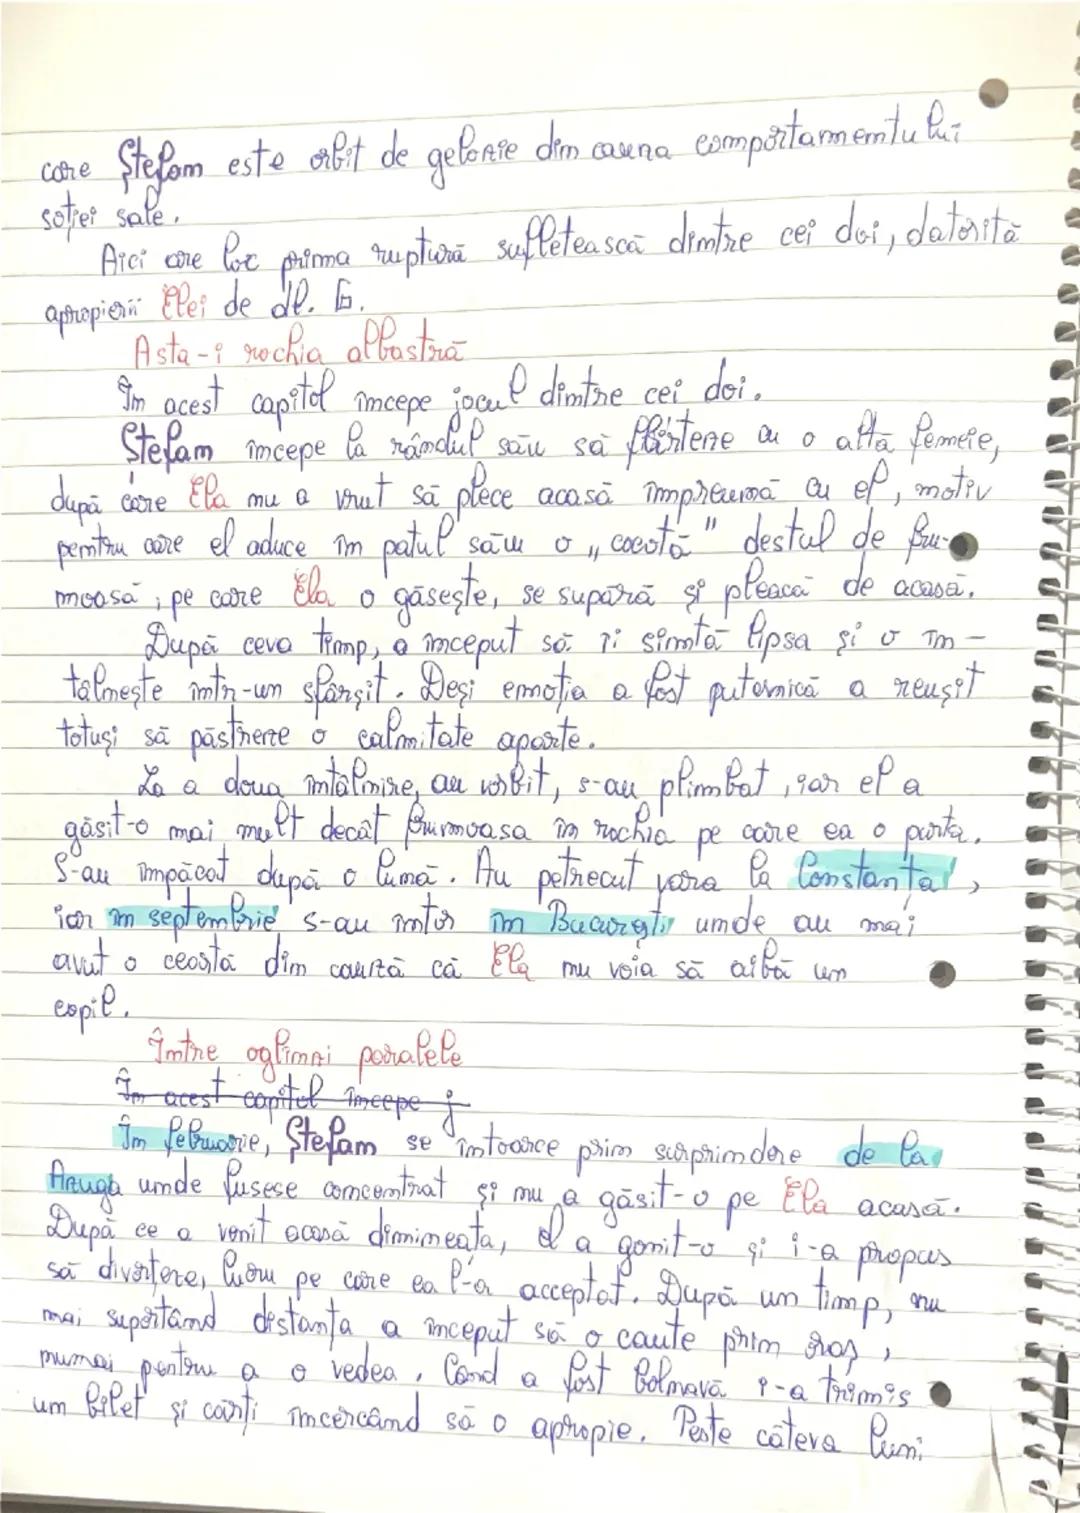 care Ștefan este orbit de gelozie din cauza comportamentului
soției sale.
Aici are loc prima ruptură sufletească dintre cei doi, datorită
apropierii Elei de dl. G.
Asta-i rochia albastră
În acest capitol începe jocul dintre cei doi.
Ștefan începe la rândul său să flirteze cu o altă femeie,
după care Ela nu a vrut să plece acasă împreună cu el, motiv
pentru care el aduce în patul său o „cocotă" destul de fru-
moasă, pe care Ela o găsește, se supără și pleacă de acasă.
După ceva timp, a început să îi simtă lipsa și o în-
tâlnește într-un sfârșit. Deși emoția a fost puternică a reușit
totuși să păstreze o calmitate aparte.
La a doua întâlnire, au vorbit, s-au plimbat, iar el a
găsit-o mai mult decât frumoasa în rochia pe care ea o purta.
S-au împăcat după o lună. Au petrecut vara la Constanța,
iar în septembrie s-au întor în București unde au mai
avut o ceartă din cauză că Ela nu voia să aibă un
copil.
Între oglinzi paralele
În acest capitol începe j
În februarie, Ștefan se întoarce prin surprindere de la
Azuga unde fusese concentrat și nu a găsit-o pe Ela acasă.
După ce a venit acasă dimineața, el a gonit-o și i-a propus
să divorțeze, lucru pe care ea l-a acceptat. După un timp, nu
mai suportând distanța a început să o caute prin oraș,
numai pentru a o vedea. Când a fost bolnavă i-a trimis
un bilet și cărți încercând să o apropie. Peste câteva luni